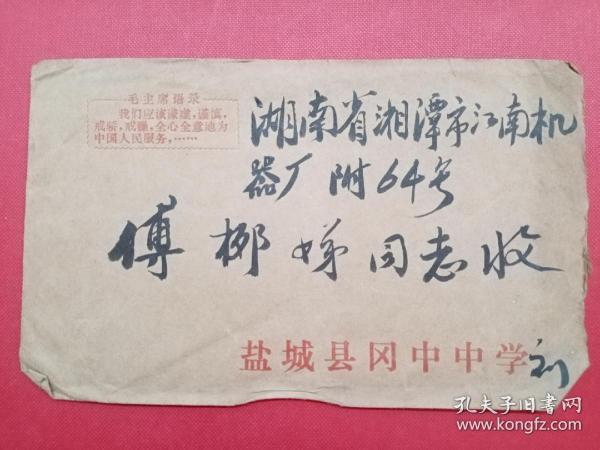 毛主席语录
我们应该谦虚，谨慎，
戒骄，戒躁，全心全意地为
中国人民服务，……
湖南省湘潭市江南机
器厂附64号
傅柳娣同志收
盐城县冈中中学刘
孔夫子旧书网
www.kongfz.com